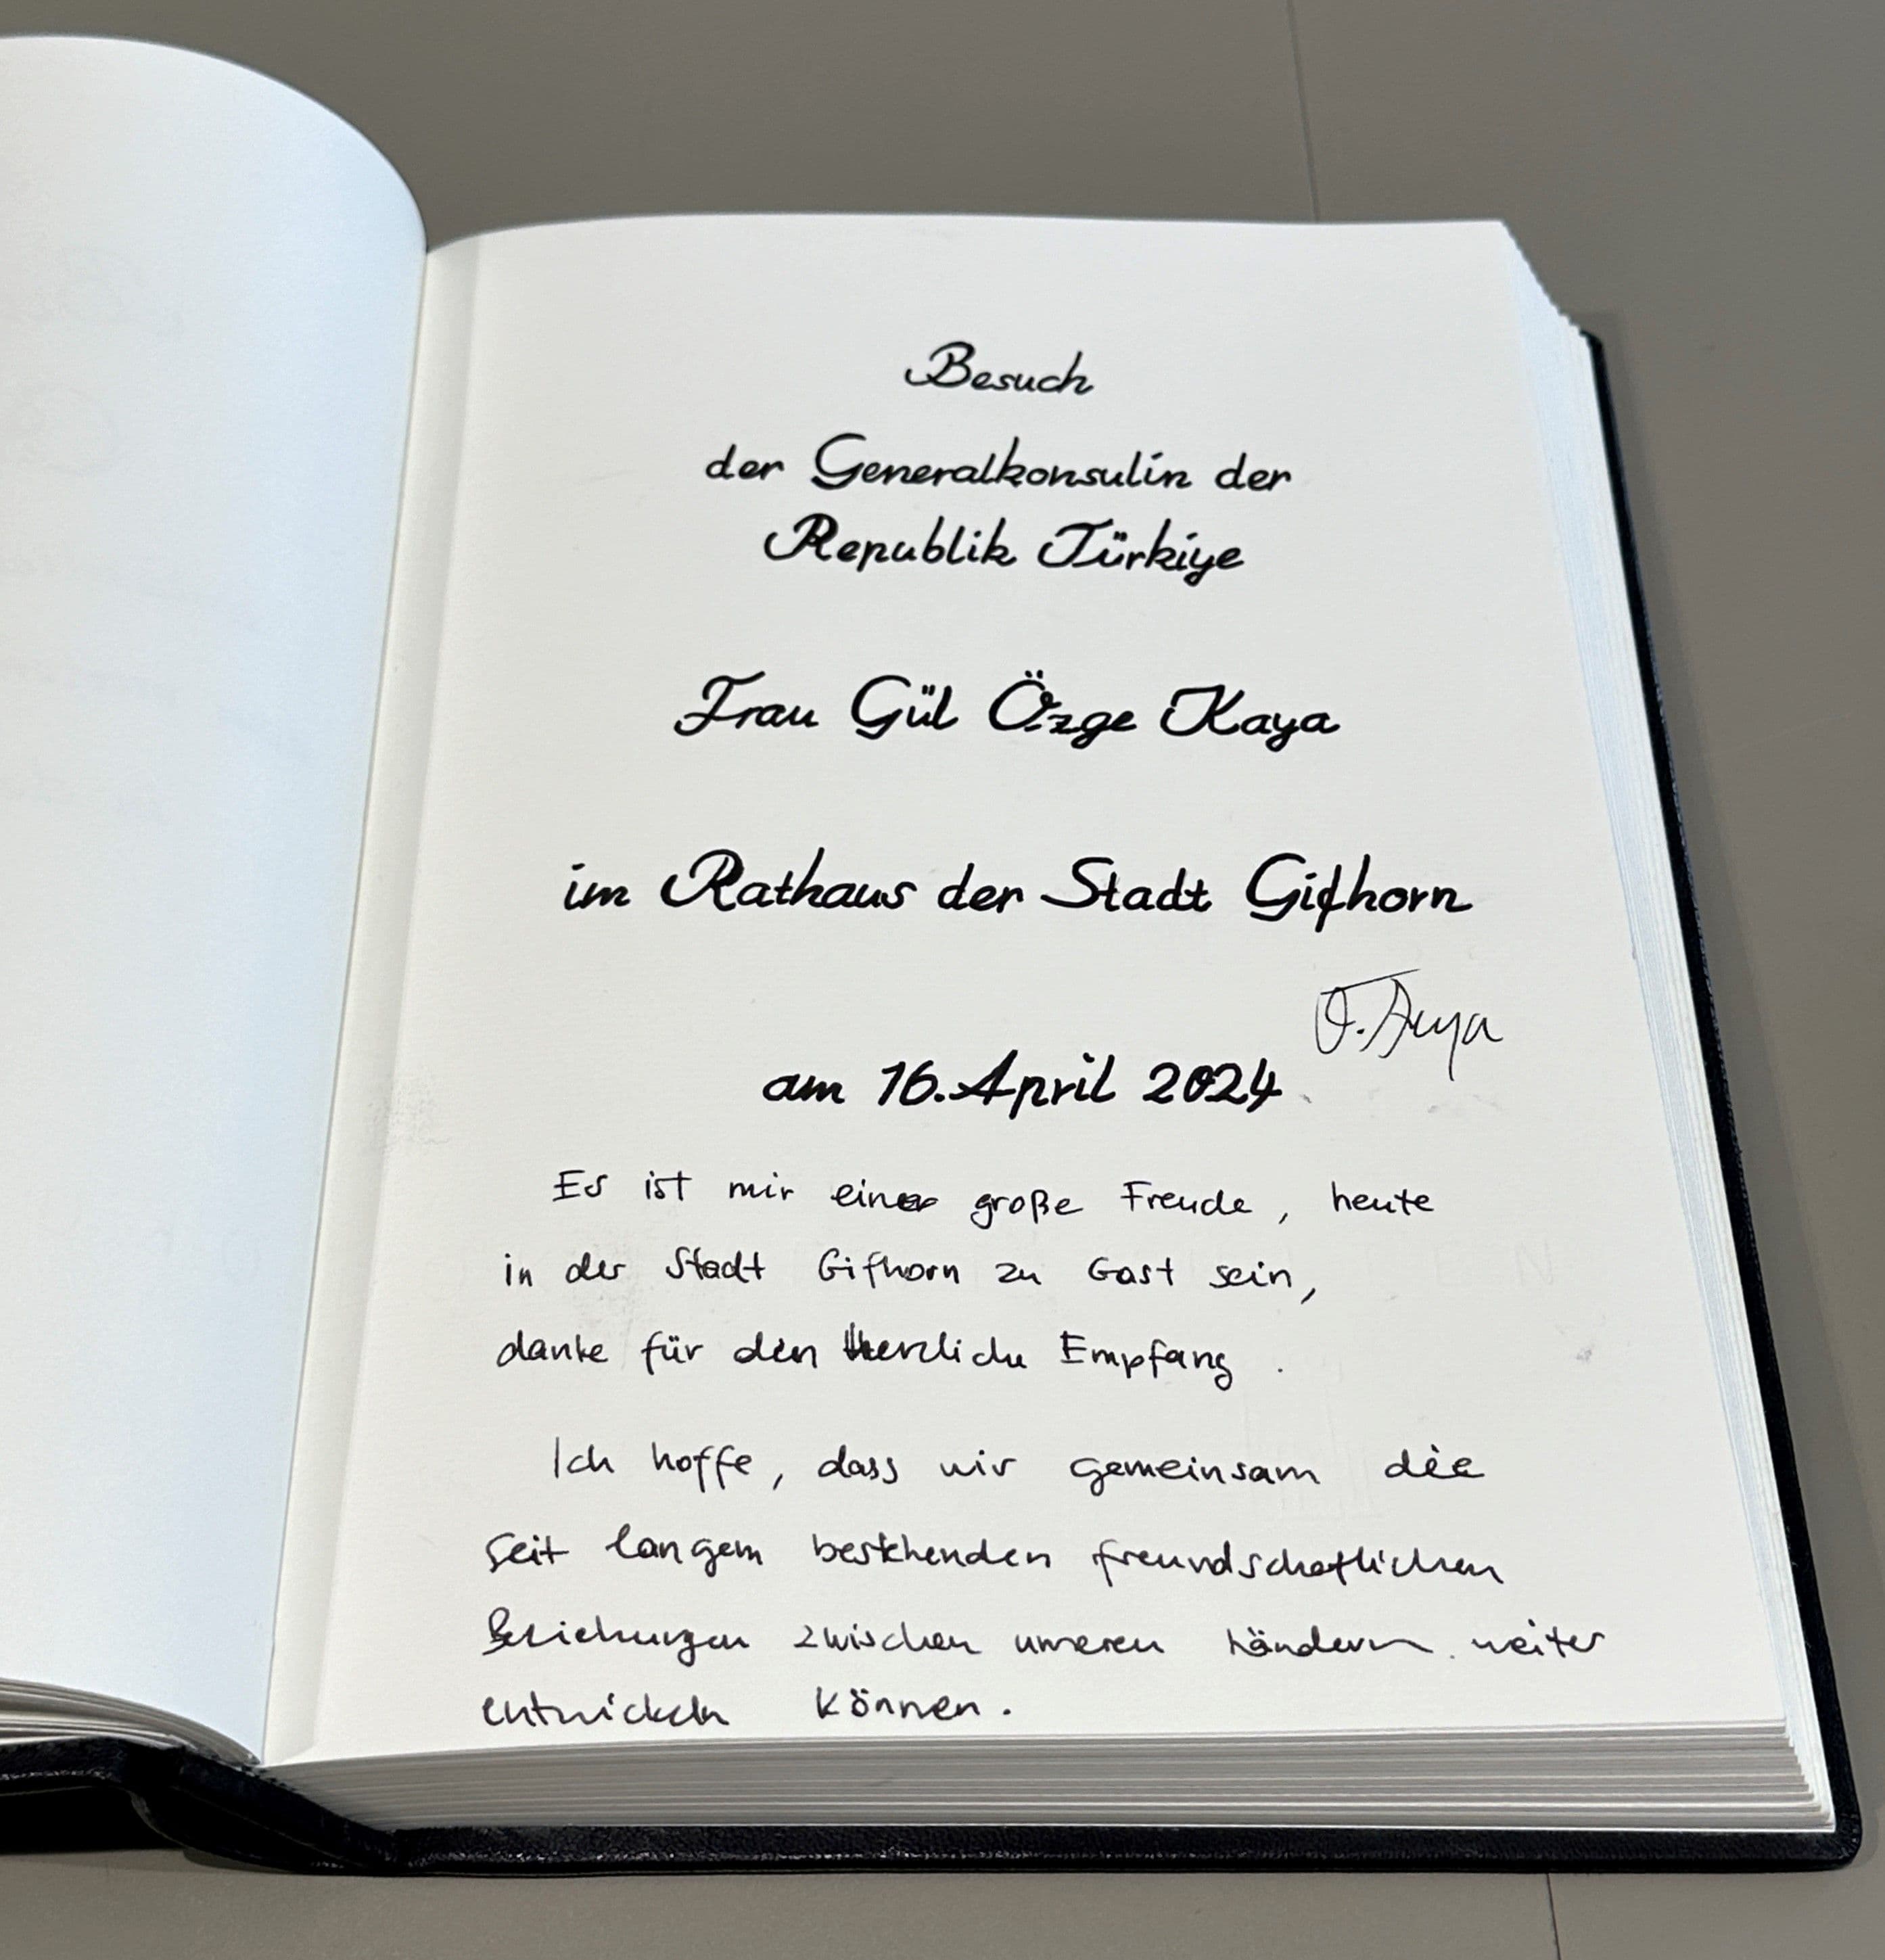 Besuch
der Generalkonsulin der
Republik Türkiye
Frau Gül Özge Kaya
im Rathaus der Stadt Gifhorn
Ö. Kaya
am 16. April 2024
Es ist mir eine große Freude, heute
in der Stadt Gifhorn zu Gast sein,
danke für den herzliche Empfang.
Ich hoffe, dass wir gemeinsam die
seit langem bestehenden freundschaftlichen
Beziehungen zwischen unseren Ländern weiter
entwickeln können.